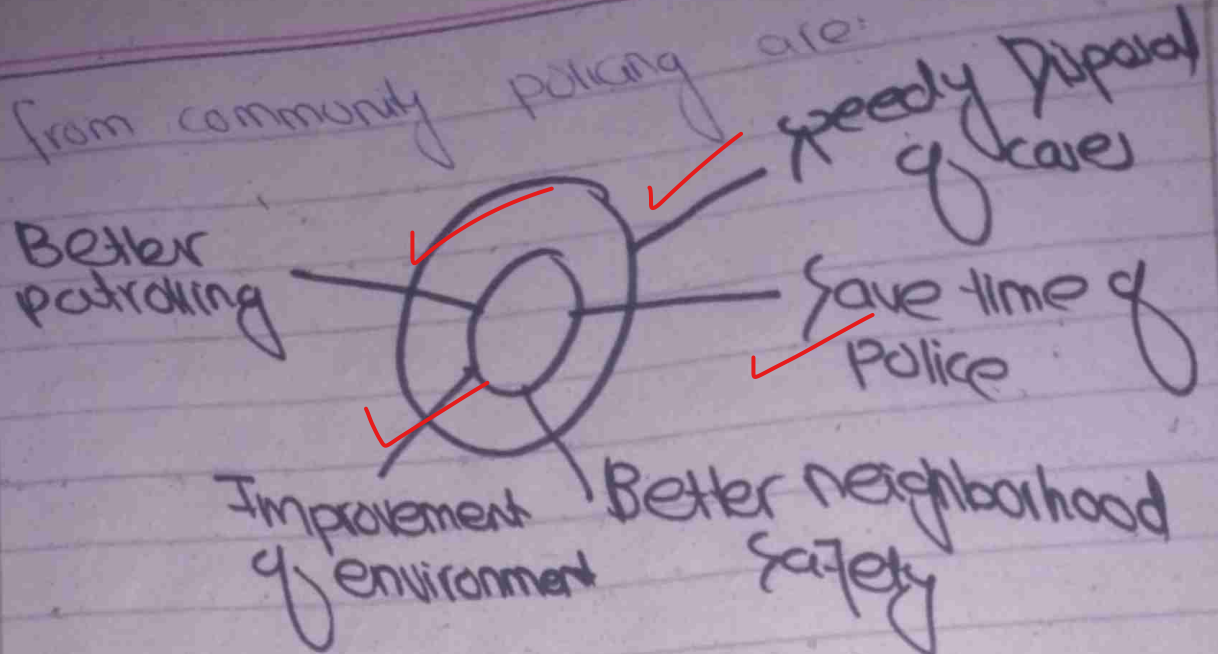 from community policing are:
Speedy Disposal
of cases
Better
patrolling
Save time of
police
Improvement
of environment
Better neighborhood
Safety